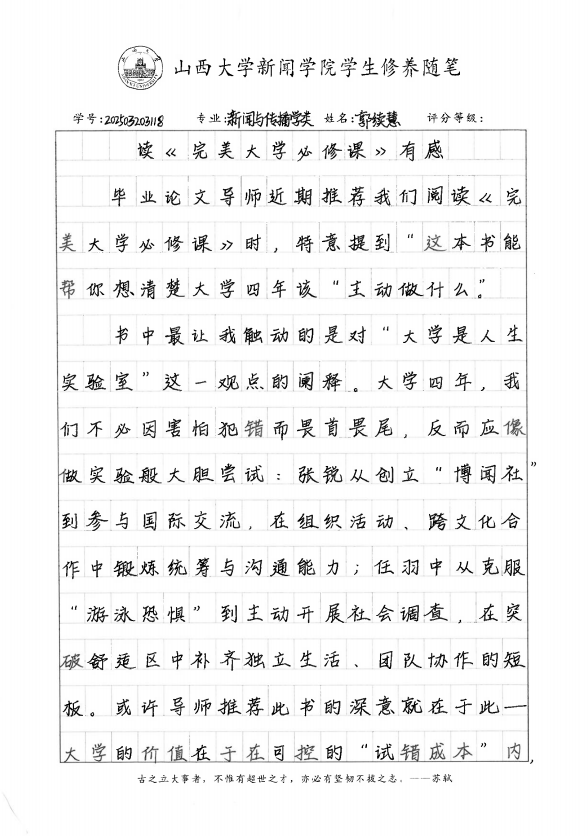 山西大学新闻学院学生修养随笔
学号:202503203118 专业:新闻与传播学类 姓名:郭续慧 评分等级:
读《完美大学必修课》有感
毕业论文导师近期推荐我们阅读《完
美大学必修课》时，特意提到“这本书能
帮你想清楚大学四年该“主动做什么”。
书中最让我触动的是对“大学是人生
实验室”这一观点的阐释。大学四年，我
们不必因害怕犯错而畏首畏尾，反而应像
做实验般大胆尝试：张锐从创立“博闻社”
到参与国际交流，在组织活动、跨文化合
作中锻炼统筹与沟通能力；任羽中从克服
“游泳恐惧”到主动开展社会调查，在突
破舒适区中补齐独立生活、团队协作的短
板。或许导师推荐此书的深意就在于此—
大学的价值在于在可控的“试错成本”内，
古之立大事者，不惟有超世之才，亦必有坚韧不拔之志。——苏轼